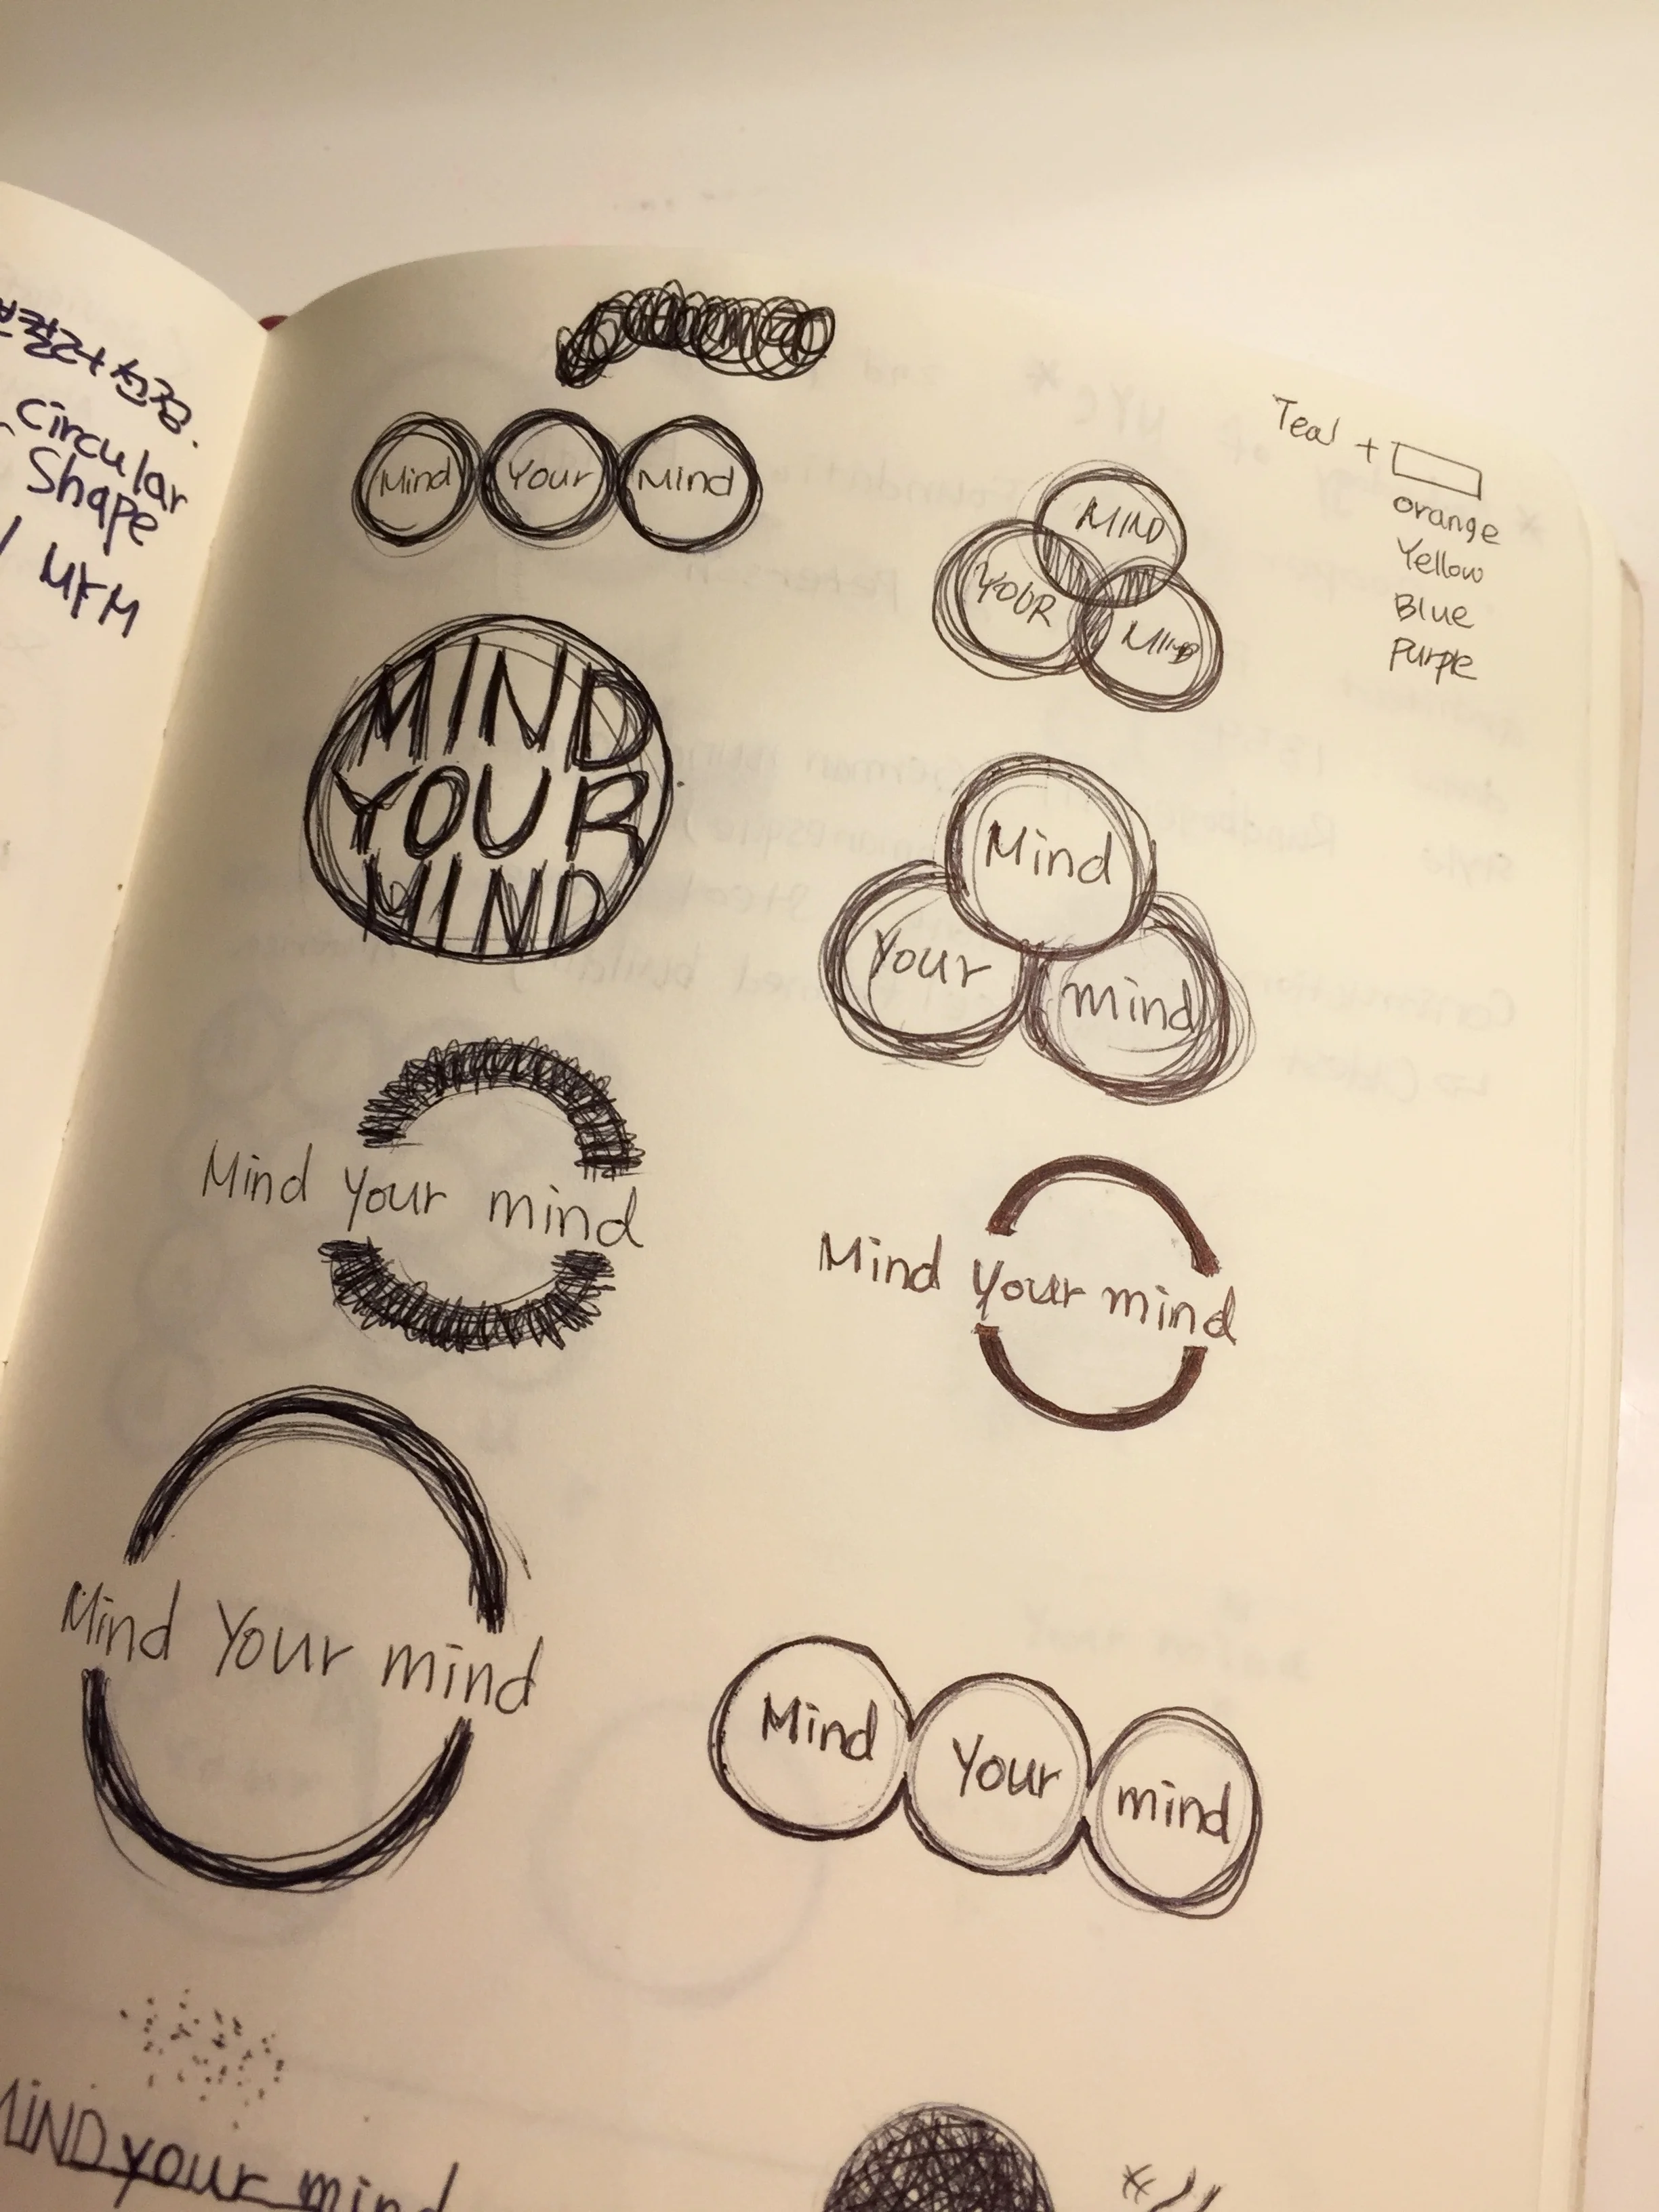 Circular
Shape
MYM
Mind Your Mind
Teal +
orange
Yellow
Blue
Purple
MIND
YOUR
MIND
MIND
YOUR
MIND
Mind
Your
mind
Mind your mind
Mind your mind
Mind Your mind
Mind Your mind
MIND your mind